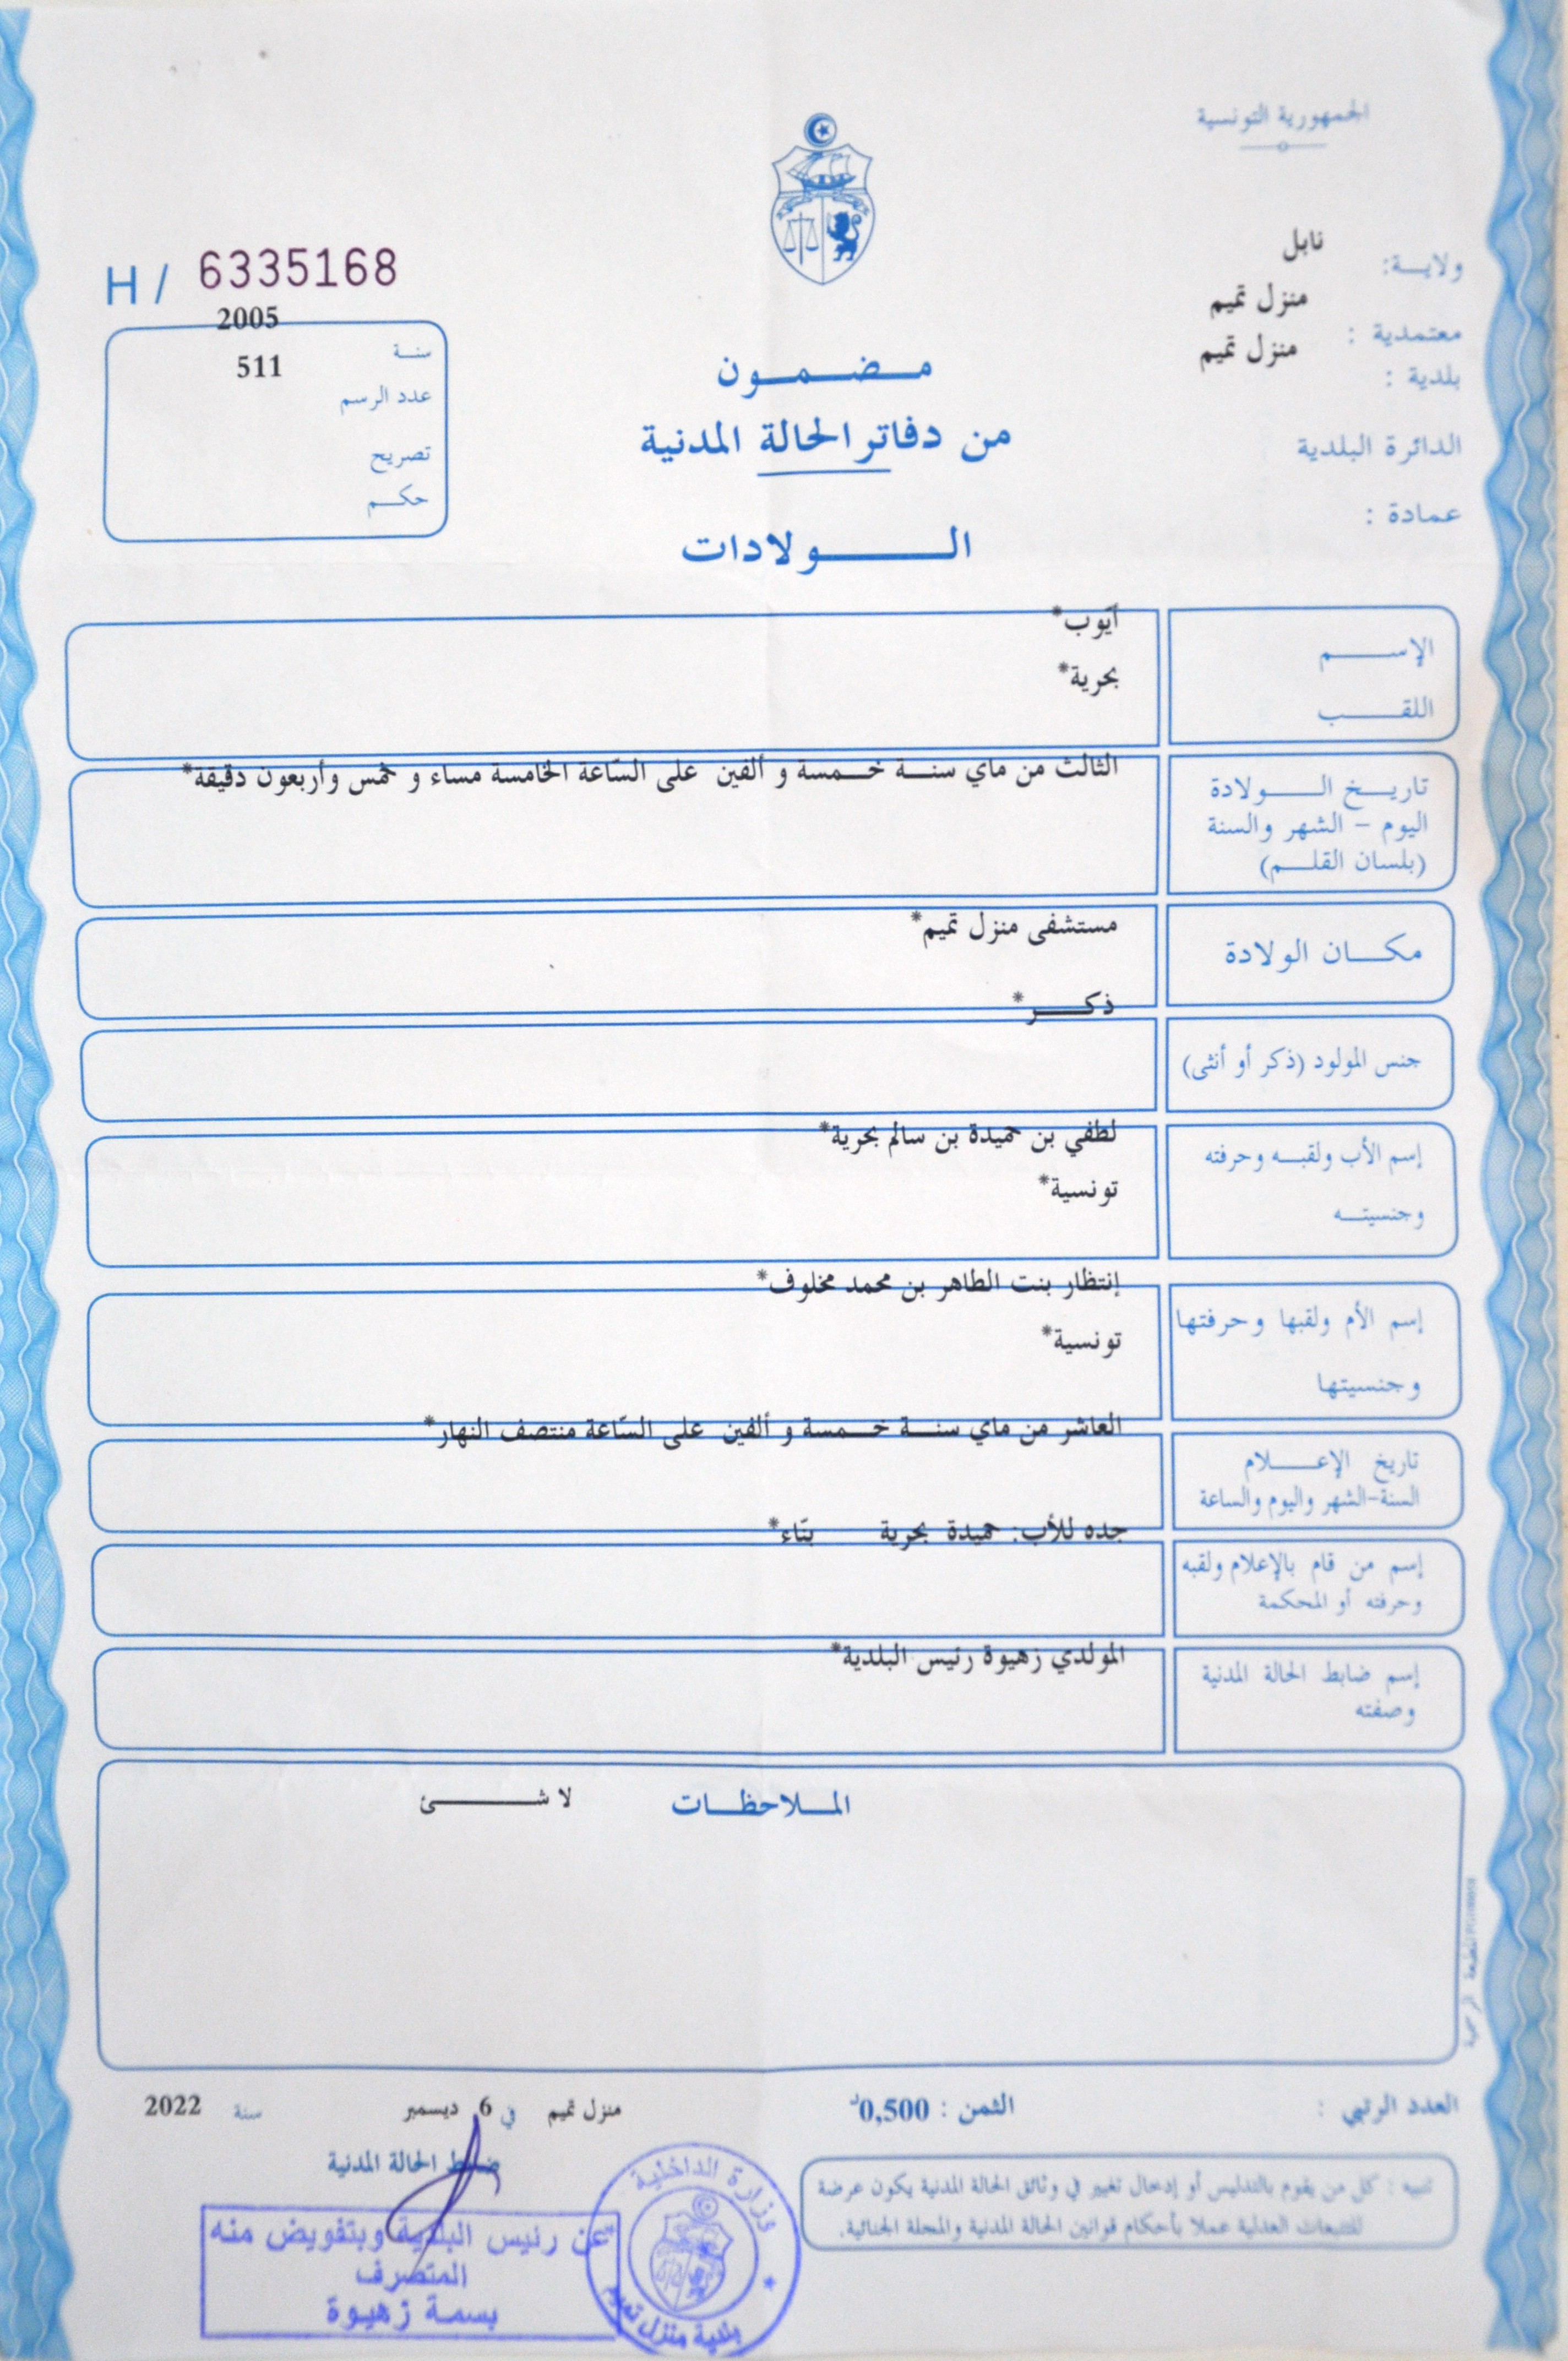 الجمهورية التونسية
ولايـــة: نابل
معتمدية : منزل تميم
بلدية : منزل تميم
الدائرة البلدية
عمادة :
H / 6335168
سنــة 2005
عدد الرسم 511
تصريح
حكــم
مـــضـــمـــون
من دفاتر الحالة المدنية
الـــــــولادات
الإســـــــم أيّوب*
اللقـــــــب بحرية*
تاريـــخ الـــــولادة
اليوم – الشهر والسنة
(بلسان القلـــم)
الثالث من ماي سنـــة خـــمسة و ألفين على السّاعة الخامسة مساء و خمس وأربعون دقيقة*
مكـــان الولادة مستشفى منزل تميم*
جنس المولود (ذكر أو أنثى) ذكـــــر*
إسم الأب ولقبـــه وحرفته لطفي بن حميدة بن سالم بحرية*
وجنسيتـــه تونسية*
إسم الأم ولقبها وحرفتها إنتظار بنت الطاهر بن محمد مخلوف*
وجنسيتها تونسية*
تاريخ الإعـــــلام
السنة-الشهر واليوم والساعة
العاشر من ماي سنـــة خـــمسة و ألفين على السّاعة منتصف النهار*
إسم من قام بالإعلام ولقبه
وحرفته أو المحكمة
جده للأب: حميدة بحرية بنّاء*
إسم ضابط الحالة المدنية
وصفته
المولدي زهيوة رئيس البلدية*
المـــلاحظـــات لا شـــــــئ
العدد الرتبي :
الثمن : 0,500د
منزل تميم في 6 ديسمبر سنة 2022
ضابط الحالة المدنية
تنبيه : كل من يقوم بالتدليس أو إدخال تغيير في وثائق الحالة المدنية يكون عرضة
للتتبعات العدلية عملا بأحكام قوانين الحالة المدنية والمجلة الجنائية.
عن رئيس البلدية وبتفويض منه
المتصرف
بسمة زهيوة
وزارة الداخلية
بلدية منزل تميم